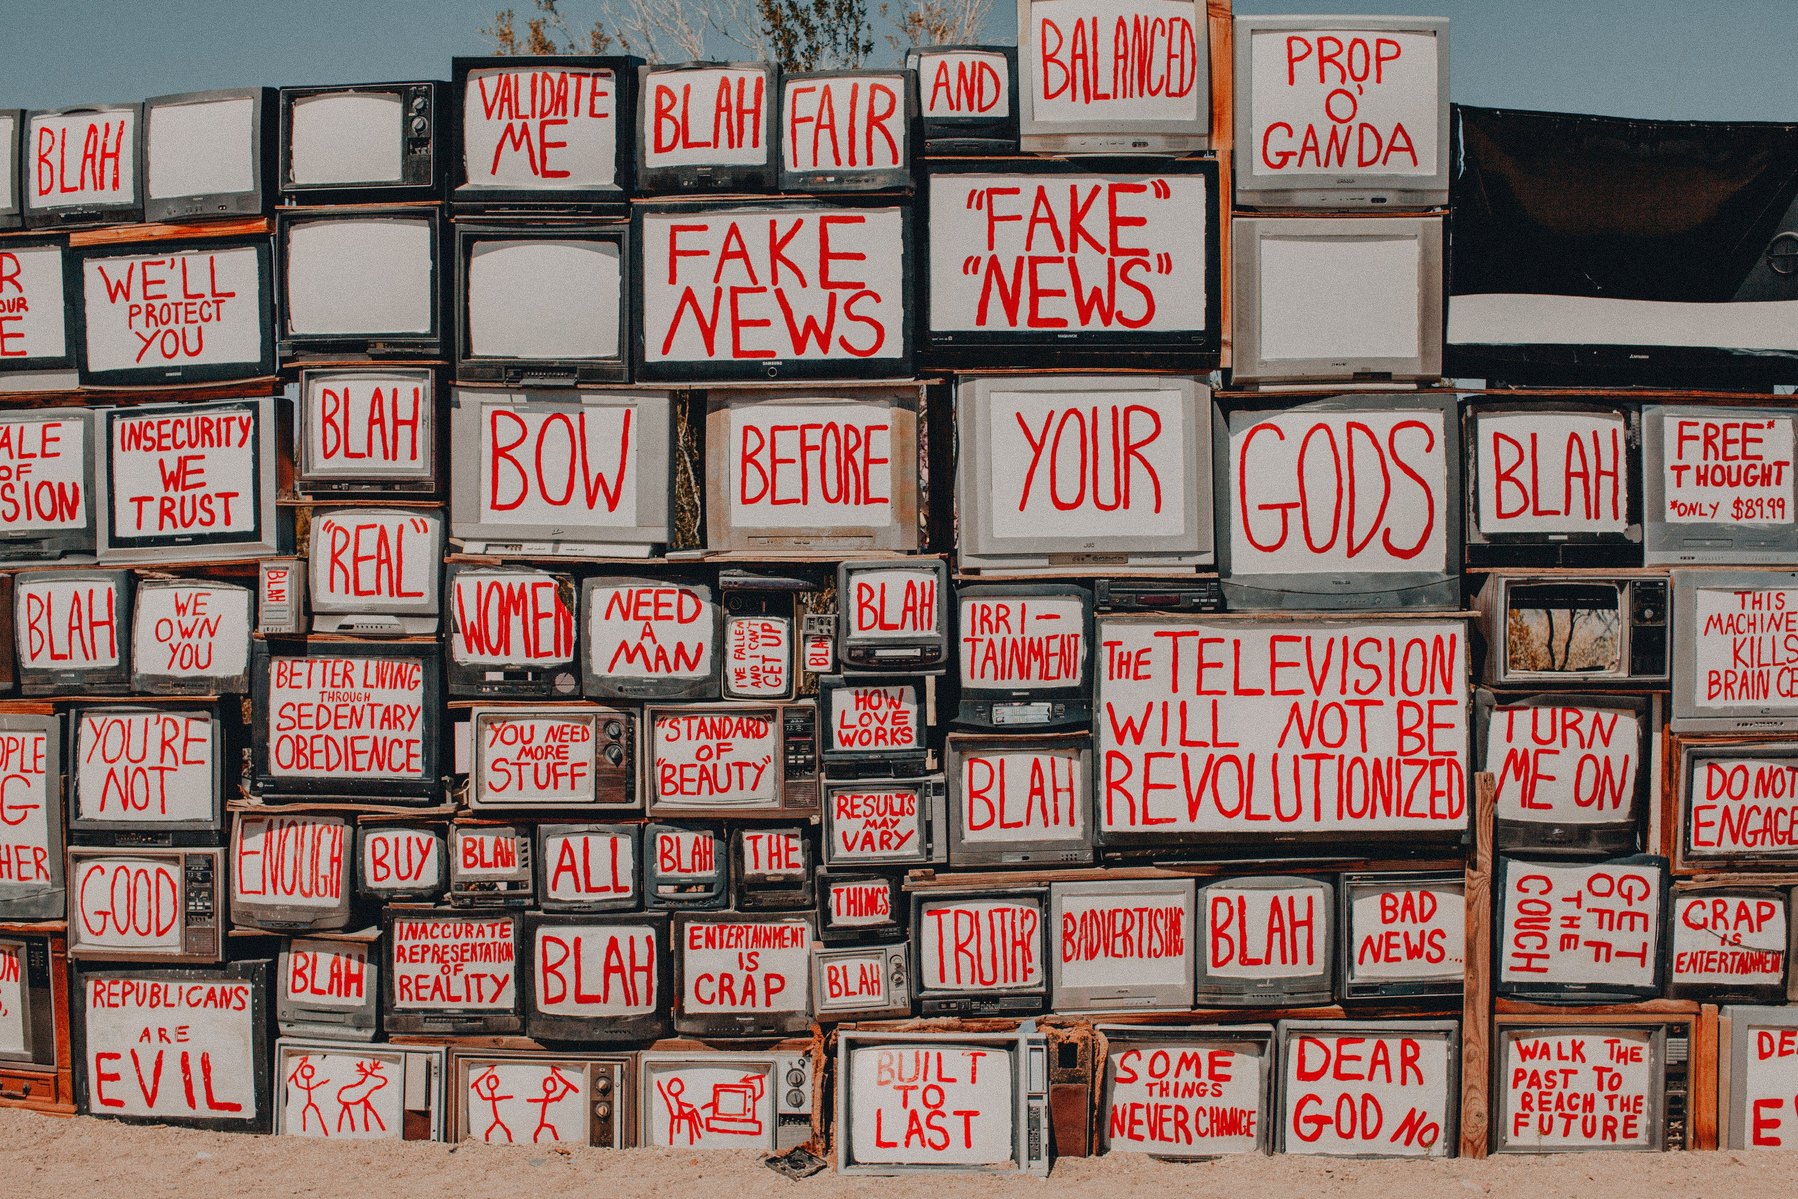 BLAH
VALIDATE
ME
BLAH
FAIR
AND
BALANCED
PROP
O'
GANDA
R
OUR
E
WE'LL
PROTECT
YOU
FAKE
NEWS
"FAKE"
"NEWS"
ALE
OF
SION
INSECURITY
WE
TRUST
BLAH
BOW
BEFORE
YOUR
GODS
BLAH
FREE*
THOUGHT
*ONLY $89.99
"REAL"
BLAH
WE
OWN
YOU
BLAH
WOMEN
NEED
A
MAN
I'VE FALLEN
AND I CAN'T
GET UP
BLAH
BLAH
IRRI-
TAINMENT
THE TELEVISION
WILL NOT BE
REVOLUTIONIZED
THIS
MACHINE
KILLS
BRAIN CE
BETTER LIVING
THROUGH
SEDENTARY
OBEDIENCE
OPLE
G
HER
YOU'RE
NOT
YOU NEED
MORE
STUFF
"STANDARD
OF
"BEAUTY"
HOW
LOVE
WORKS
BLAH
TURN
ME ON
DO NOT
ENGAGE
RESULTS
MAY
VARY
GOOD
ENOUGH
BUY
BLAH
ALL
BLAH
THE
THINGS
TRUTH?
BADVERTISING
BLAH
BAD
NEWS...
GET
OFF
THE
COUCH
CRAP
IS
ENTERTAINMENT
ON
BLAH
INACCURATE
REPRESENTATION
OF
REALITY
BLAH
ENTERTAINMENT
IS
CRAP
BLAH
REPUBLICANS
ARE
EVIL
BUILT
TO
LAST
SOME
THINGS
NEVER CHANGE
DEAR
GOD NO
WALK THE
PAST TO
REACH THE
FUTURE
DE
E